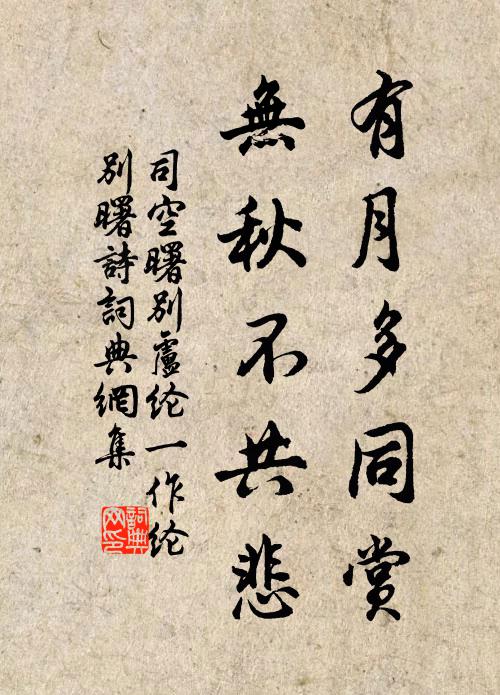 有月多同賞
無秋不共悲
司空曙别盧纶一作纶
别曙詩詞典網集
詞典
网印